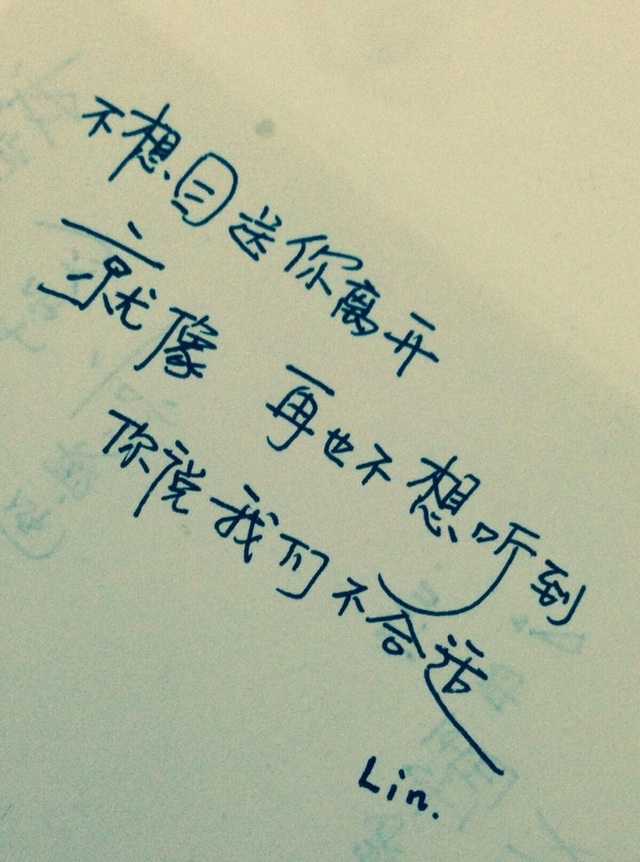 不想目送你离开
就像 再也不想听到
你说我们不合适
Lin.